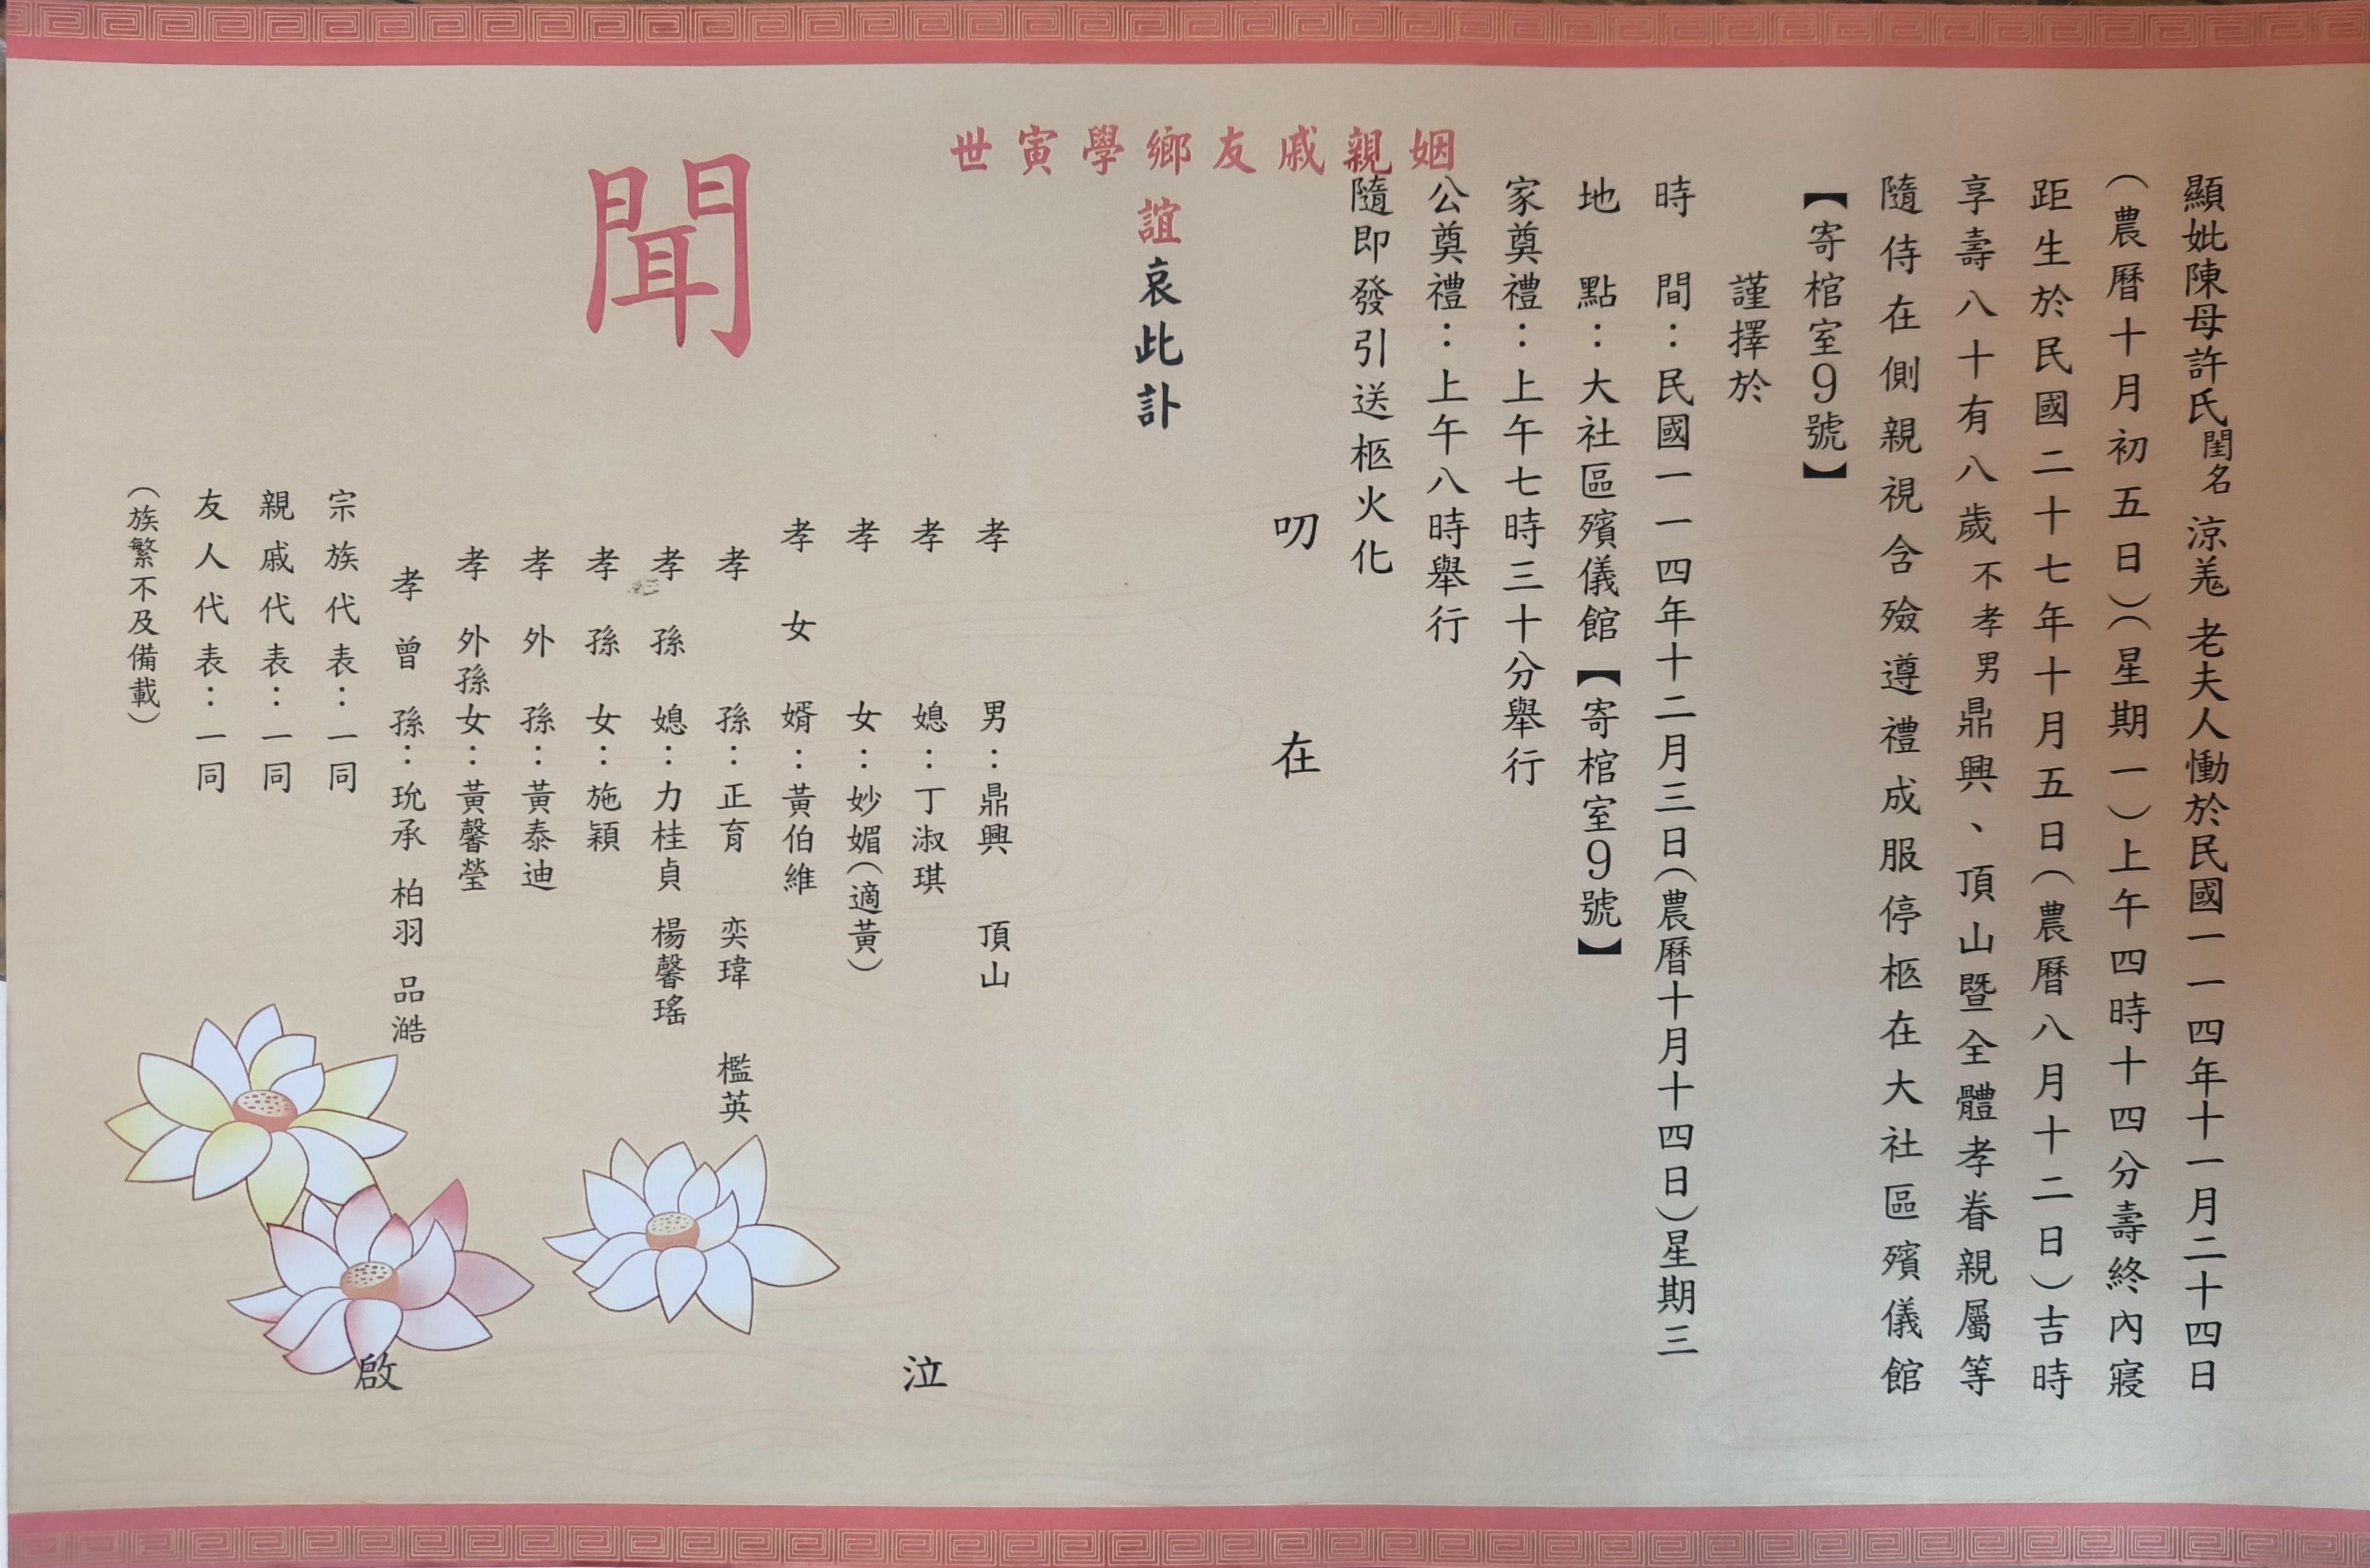 顯妣陳母許氏閨名 涼羗 老夫人慟於民國一一四年十一月二十四日
（農曆十月初五日）（星期一）上午四時十四分壽終內寢
距生於民國二十七年十月五日（農曆八月十二日）吉時
享壽八十有八歲不孝男鼎興、頂山暨全體孝眷親屬等
隨侍在側親視含殮遵禮成服停柩在大社區殯儀館
【寄棺室9號】
謹擇於
時間：民國一一四年十二月三日（農曆十月十四日）星期三
地點：大社區殯儀館【寄棺室9號】
家奠禮：上午七時三十分舉行
公奠禮：上午八時舉行
隨即發引送柩火化
叨在
姻親戚友鄉學寅世
誼哀此訃
聞
孝男：鼎興 頂山
孝媳：丁淑琪
孝女：妙媚（適黃）
孝女婿：黃伯維
孝孫：正育 奕瑋 檻英
孝孫媳：力桂貞 楊馨瑤
孝孫女：施穎
孝外孫：黃泰迪
孝外孫女：黃馨瑩
孝曾孫：玧承 柏羽 品澔
泣
宗族代表：一同
親戚代表：一同
友人代表：一同
（族繁不及備載）
啟